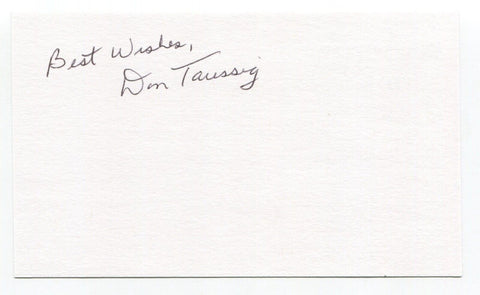 Best Wishes,
Don Taussig